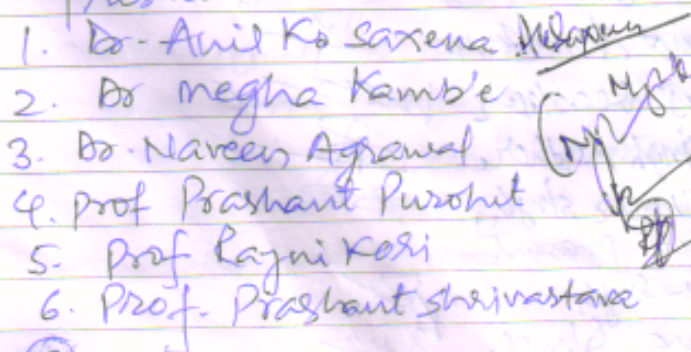 1. Dr. Anil Ko Saxena
2. Dr Megha Kamble
3. Dr. Naveen Agrawal
4. Prof Prashant Purohit
5. Prof Rajni Kori
6. Prof. Prashant Shrivastava